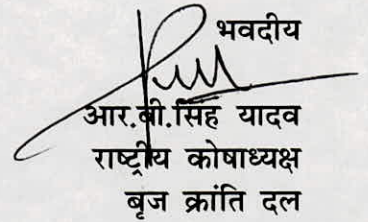 भवदीय
आर.बी.सिंह यादव
राष्ट्रीय कोषाध्यक्ष
बृज क्रांति दल